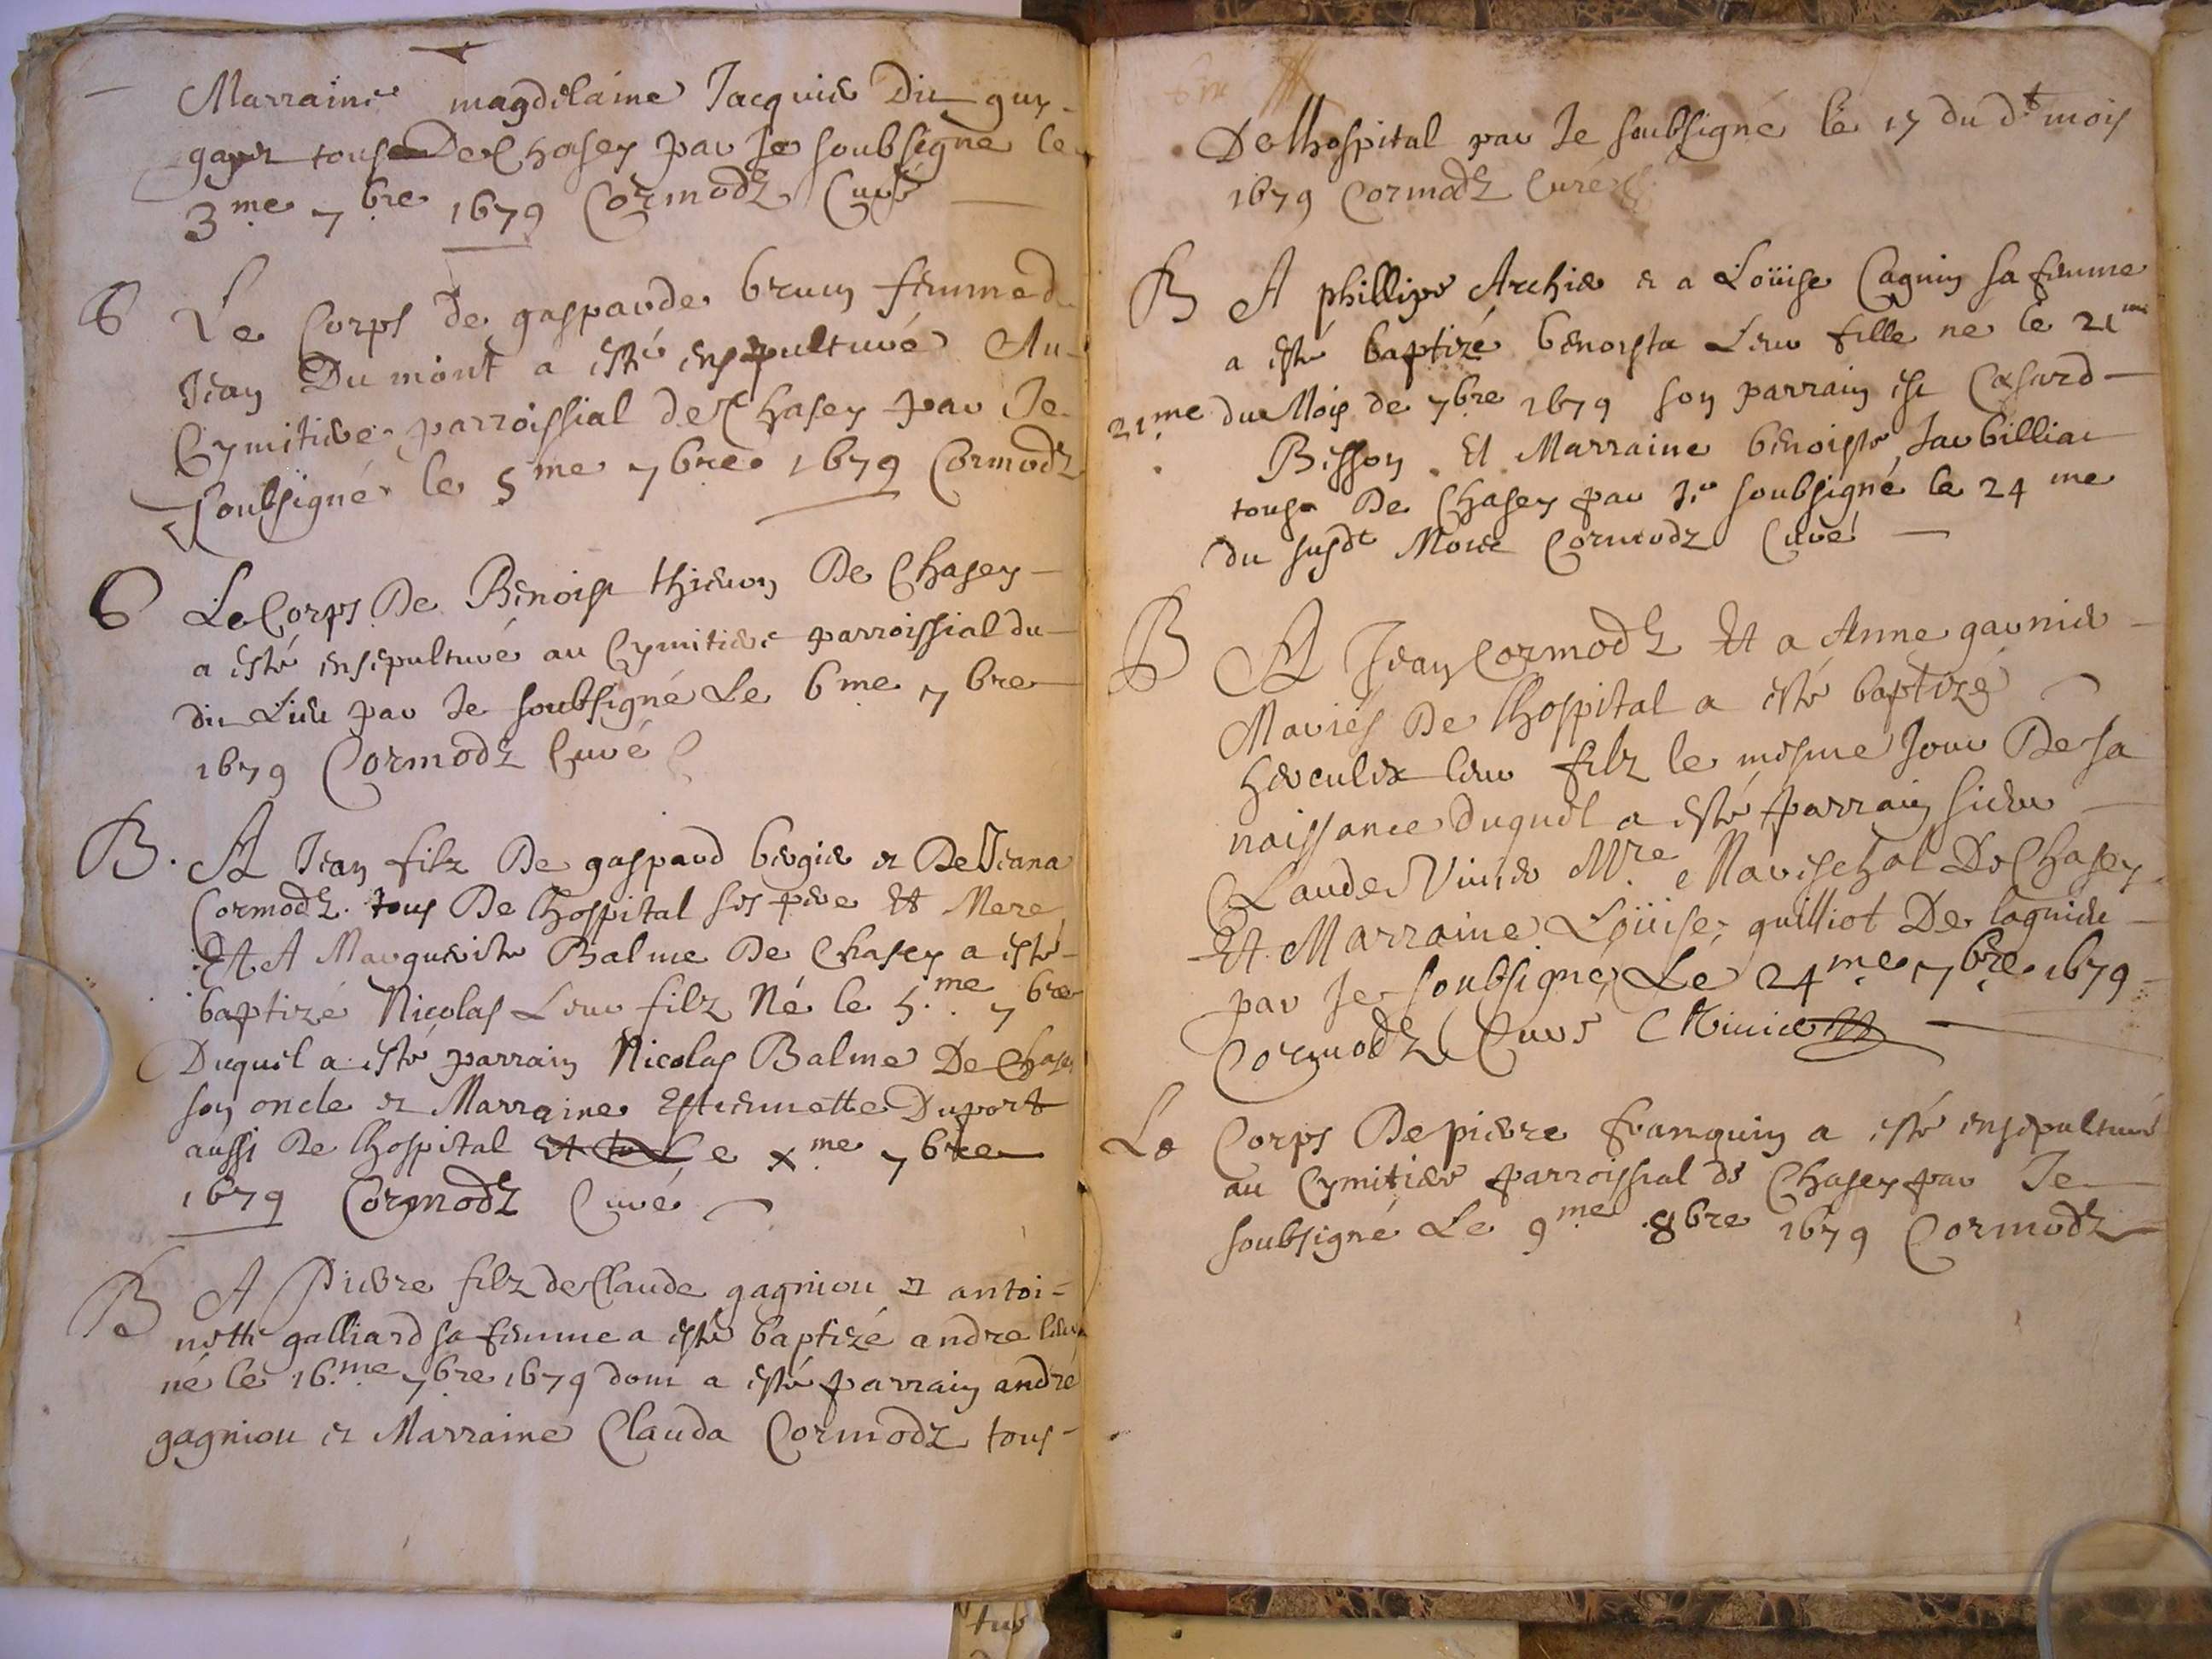 Marraine magdelaine Jacquier Du guy-
gayer tous De Chasey par Je soubsigné le
3.me 7bre 1679 Cormodz Curé
6 Le Corps de gasparde brun femme d
Jean Dumont a esté ensepulturé Au-
Cymitiere parroissial de Chasey par Je
soubsigné le 5me 7bre 1679 Cormodz
6 Le Corps De Benoist thieuon De Chasey
a esté ensepulturé au Cymitiere parroissial du
dit Lieu par Je soubsigné Le 6me 7bre
1679 Cormodz Curé
B. A Jean filz De gaspard bergier et De Jeana
Cormodz. tous De lhospital ses pere Et Mere
Et A Marguerite Balme De Chasey a esté
baptizé Nicolas Leur filz Né le 5.me 7bre
Duquel a esté parrain Nicolas Balme De Chasey
son oncle et Marraine Estiennette Duport
aussi De lhospital Le xme 7bre
1679 Cormodz Curé
B A Pierre filz de Claude gagniou et antoi-
nette galliard sa femme a esté baptizé andre leur
né le 16.me 7bre 1679 dont a esté parrain andré
gagniou et Marraine Clauda Cormodz tous-
De lhospital par Je soubsigné le 17 du dt mois
1679 Cormodz Curé
B A phillipe Archier et a Loüise Cagnin sa femme
a esté baptizé benoista Leur fille ne le 21me
21me du Mois de 7bre 1679 son parrain est Casard
Bisson Et Marraine benoiste Jarbilliat
tous De Chasey par Je soubsigné le 24me
du susdt Mois Cormodz Curé
B A Jean Cormodz Et a Anne garnier
Mariés De lhospital a esté baptizé
hercules leur filz le mesme Jour De sa
naissance duquel a esté parrain sieur
Claude Vinier Mre Mareschal De Chasey
Et Marraine Loüise guilliot De lagnieu
par Je soubsigné Le 24me 7bre 1679
Cormodz Curé C Vinier
Le Corps De pierre franquin a esté ensepulturé
au Cymitiere parroissial de Chasey par Je
soubsigné Le 9me 8bre 1679 Cormodz